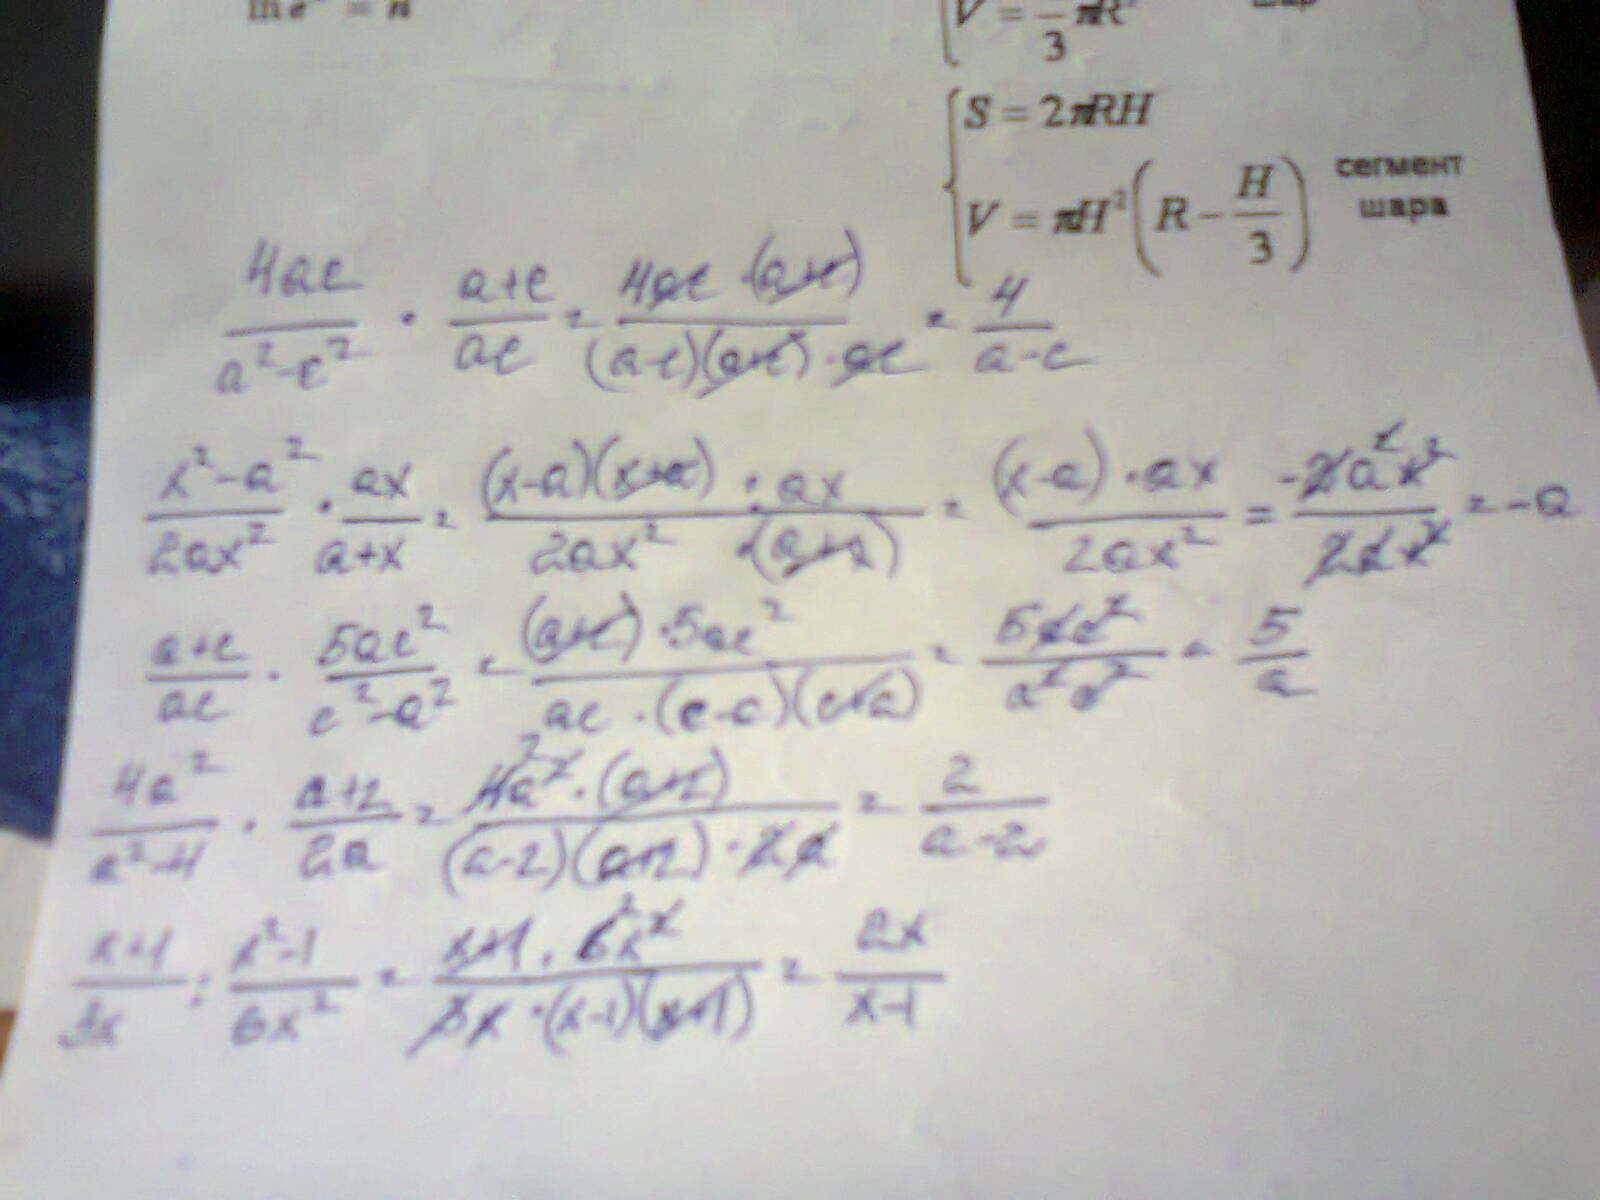 ln eⁿ = n
V = /3 πR³ шар
S = 2πRH
V = πH²(R − H/3) сегмент шара
4ac/(a²-c²) · (a+c)/ac = 4ac·(a+c)/((a-c)(a+c)·ac) = 4/(a-c)
(x²-a²)/2ax² · ax/(a+x) = (x-a)(x+a)·ax/(2ax²·(a+x)) = (x-a)·ax/2ax² = -2a²x²/2ax² = -a
(a+c)/ac · 5ac²/(c²-a²) = (a+c)·5ac²/(ac·(c-a)(c+a)) = 5ac²/a²c² = 5/a
4a²/(a²-4) · (a+2)/2a = 4a²·(a+2)/((a-2)(a+2)·2a) = 2/(a-2)
(x+1)/3x : (x²-1)/6x² = x+1·6x²/(3x·(x-1)(x+1)) = 2x/(x-1)